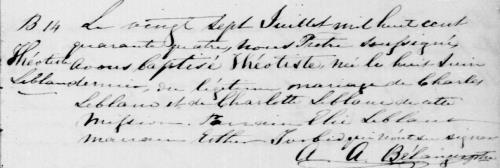 B 14 Le vingt Sept Juillet mil huit cent
quarante quatre, nous Prêtre soussigné,
Théotiste avons baptisé Théotiste, née le huit Juin
Leblanc dernier, du légitime mariage de Charles
Leblanc et de Charlotte Leblanc de cette
Mission. Parrain Elie Leblanc
marraine Esther qui n'ont signer
A. A. Bélanger ptre